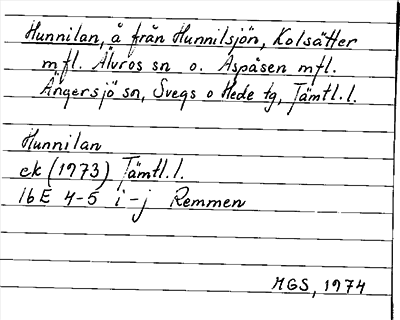 Hunnilan, å från Hunnilsjön, Kolsätter
m fl. Älvros sn o. Aspåsen mfl.
Ängersjö sn, Svegs o Hede tg, Jämtl. l.
Hunnilan
ek (1973) Jämtl. l.
16 E 4-5 i-j Remmen
MGS, 1974